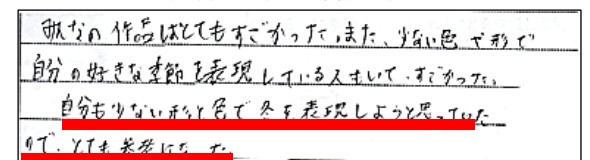 みんなの作品はとてもすごかった。また、少ない色や形で
自分の好きな季節を表現している人もいて、すごかった。
自分も少ない形と色で冬を表現しようと思っていた
ので、とても参考になった。